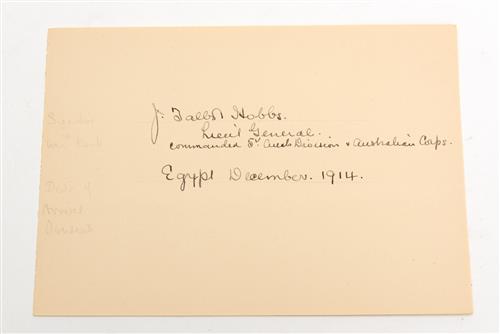 J. Talbot Hobbs.
Lieut General.
commanded 5th Aust Division & Australian Corps.
Egypt December. 1914.